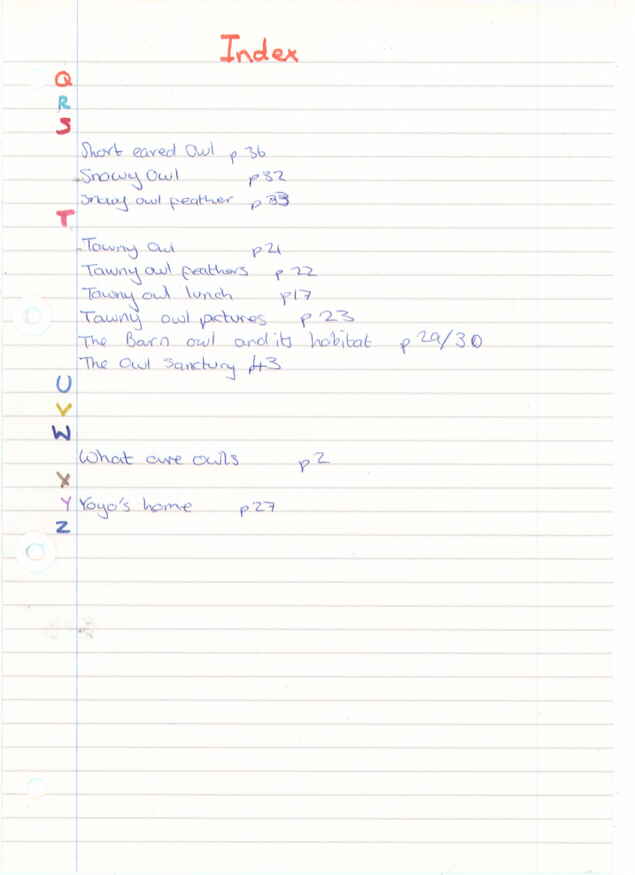 Index
Q
R
S
Short eared Owl p 36
Snowy Owl p32
Snowy owl feather p 33
T
Tawny Owl p21
Tawny owl feathers p 22
Tawny owl lunch p17
Tawny owl pictures p 23
The Barn owl and its habitat p 29/30
The Owl Sanctury 43
U
V
W
What are owls p2
X
Y Yoyo's home p27
Z